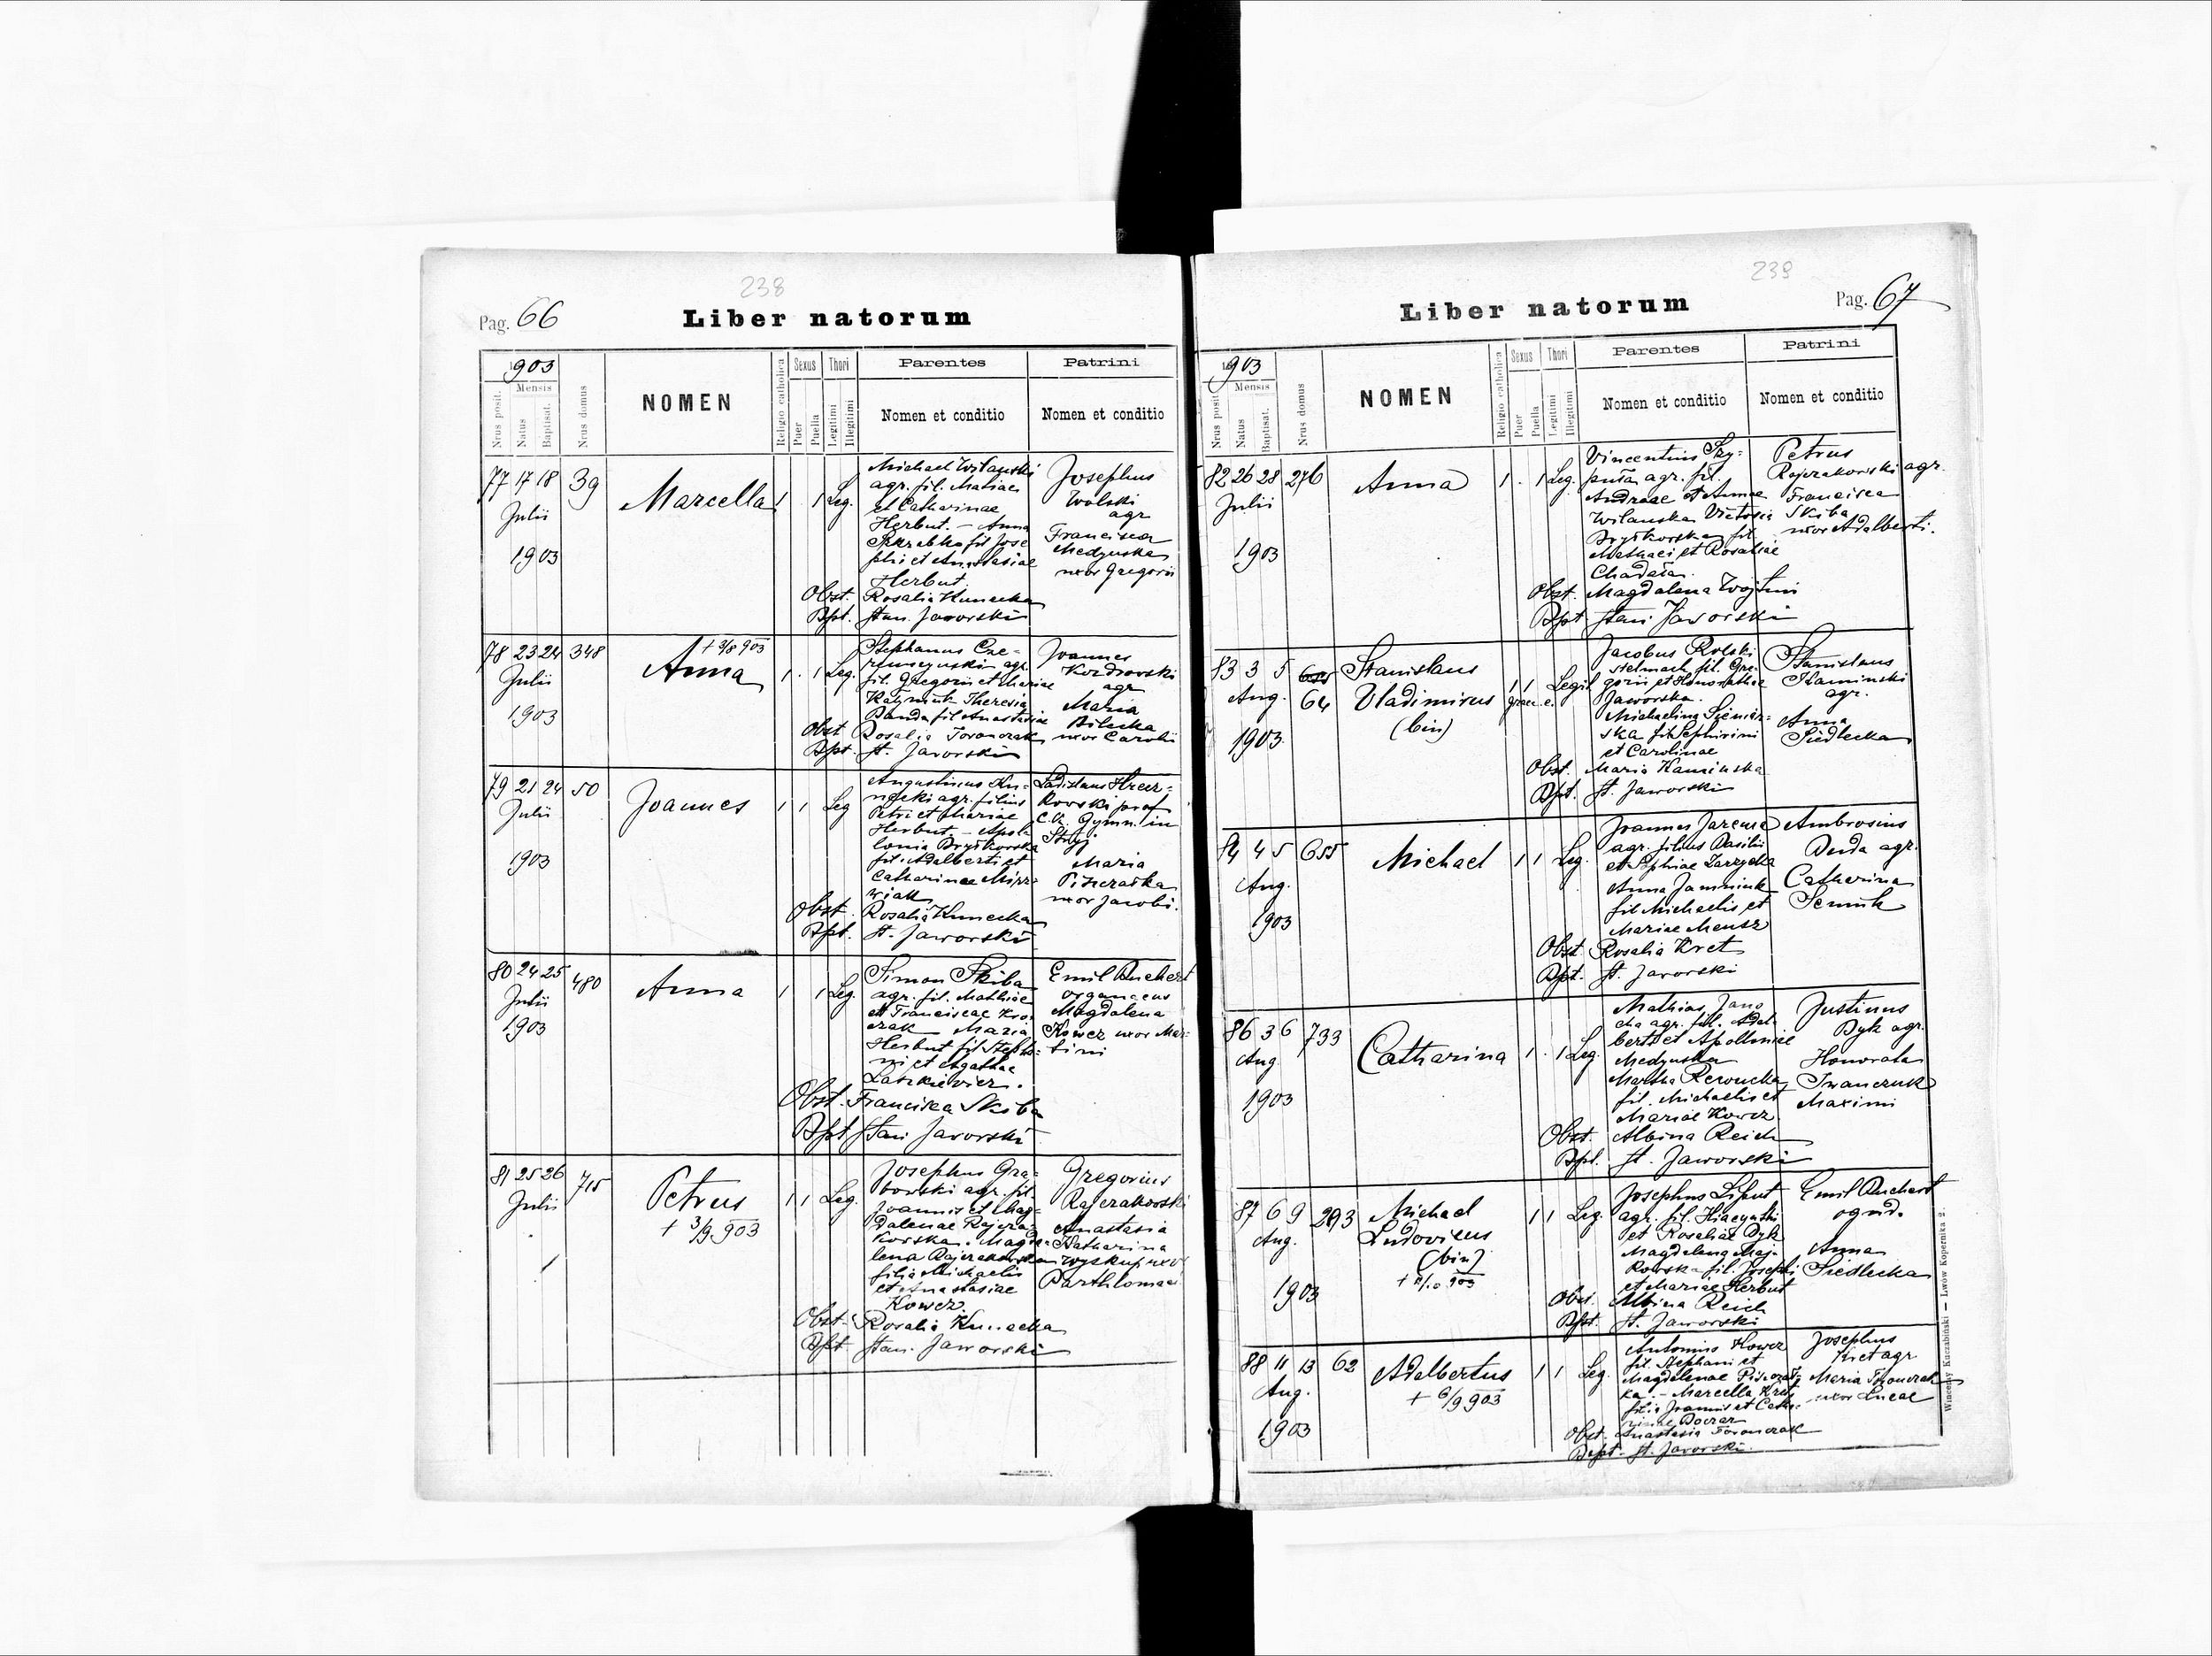 238
Pag. 66
Liber natorum
1903
Mensis
Nrus posit.
Natus
Baptisat.
Nrus domus
NOMEN
Religio catholica
Sexus
Puer
Puella
Thori
Legitimi
Illegitimi
Parentes
Nomen et conditio
Patrini
Nomen et conditio
77 17 18 39
Julii
1903
Marcella 1 1 Leg.
Michael Wilanski
agr. fil. Matiae
et Catharinae
Herbut. – Anna
fil Jose
phi et Anastasiae
Herbut.
Obst. Rosalia Kunecka
Bpt. Stan. Jaworski
Josephus
Wolski
agr
Francisca
Medynska
uxor Gregorii
78 23 24 348
Julii
1903
Anna
1 1 Leg.
Stephanus Cze-
agr.
fil. Gregorii et Mariae
Theresia
Danda fil Anastasiae
Obst Rosalia Toronczak
Bpt. St. Jaworski
Joannes
agr
Maria
Bilecka
uxor Caroli
79 21 24 50
Julii
1903
Joannes 1 1 Leg
Augustinus Ku-
necki agr. filius
Petri et Mariae
Herbut. – Apol-
lonia Bryszkorska
fil. Adalberti et
Catharinae
wiak
Obst. Rosalia Kunecka
Bpt. St. Jaworski
Ladislaus
prof
c.k. Gymn. in
Stryj
Maria
uxor Jacobi.
80 24 25 480
Julii
1903
Anna 1 1 Leg.
Simon Skiba
agr. fil. Mathiae
et Franciscae Kro-
czak Maria
Herbut fil Stepha-
ni et Agathae
Laszkiewicz.
Obst. Francisca Skiba
Bpt Stan. Jaworski
Emil Ruchert
organicus
Magdalena
Kowcz uxor Mar-
tini
81 25 26 715
Julii
Petrus
+ 3/9 903
1 1 Leg.
Josephus Gra-
bowski agr. fil.
Joannis et Mag-
dalenae Rajcza-
korska. Magda-
lena Rajczakorska
filia Michaelis
et Anastasiae
Kowcz.
Obst. Rosalia Kunecka
Bpt Stan. Jaworski
Gregorius
Rajczakowski
Anastasia
Katharina
Wyskup uxor
Parthlomaei
239
Liber natorum
Pag. 67
1903
Mensis
Nrus posit
Natus
Baptisat.
Nrus domus
NOMEN
Religio catholica
Sexus
Puer
Puella
Thori
Legitimi
Illegitimi
Parentes
Nomen et conditio
Patrini
Nomen et conditio
82 26 28 276
Julii
1903
Anna 1 1 Leg.
Vincentius Szy-
puła agr. fil.
Andreae et Annae
Wilanska Victoria
Bryszkorska fil.
Mathaei et Rosaliae
Obst. Magdalena Wojtun
Bpt Stan. Jaworski
Petrus
Rajczakowski agr.
Francisca
Skiba
uxor Adalberti.
83 3 5
Aug. 64
1903.
Stanislaus
Vladimirus
(bin)
1 1 Legit
Jacobus Rolski
stelmach fil. Gre-
gorii et Honorathae
Jaworska.
Michaelina
ska fil Sephirini
et Carolinae
Obst. Maria Kaminska
Bpt. St. Jaworski
Stanislaus
Kaminski
agr.
Anna
Siedlecka
84 4 5 655
Aug.
1903
Michael 1 1 Leg.
Joannes Jarema
agr. filius Basilii
et Sophiae Zarzycka
Anna
fil Michaelis et
Mariae
Obst. Rosalia Kret
Bpt. St. Jaworski
Ambrosius
Duda agr.
Catharina
86 3 6 733
Aug
1903
Catharina 1 1 Leg.
Mathias Jano
cha agr. fil. Adal-
berti et Apolloniae
Medynska
Martha Rewucka
fil. Michaelis et
Mariae Kowcz
Obst. Albina Reich
Bpt. St. Jaworski
Justinus
Dyk agr.
Honorata
Iwanczuk
Maximi
87 6 9 293
Aug.
1903
Michael
Ludovicus
(bin)
1 1 Leg.
Josephus Liput
agr. fil. Hiacynthi
et Rosaliae Dyk
Magdalena Maj-
korska fil. Josephi
et Mariae Herbut
Obst. Albina Reich
Bpt. St. Jaworski
Emil Ruchert
Anna
Siedlecka
88 11 13 62
Aug.
1903
Adelbertus
+ 6/9 903
1 1 Leg.
Antonius Kowcz
fil. Stephani et
Magdalenae
ka. – Marcella Kret
filia Joannis et Catha-
rinae
Obst. Anastasia Toronczak
Bapt. St. Jaworski.
Josephus
Kret agr
Maria Toronczak
uxor Lucae
Wincenty Kuczabiński — Lwów Kopernika 2.